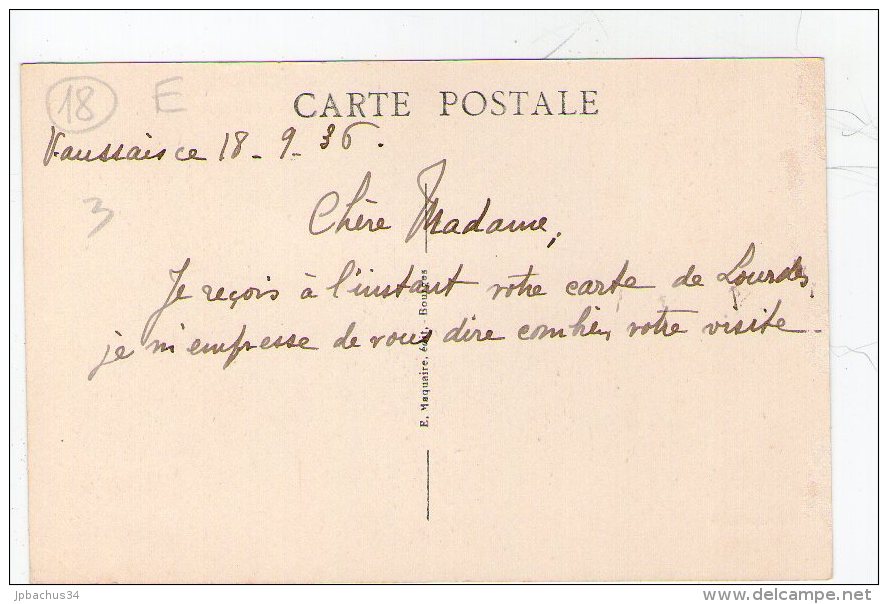 18 E
CARTE POSTALE
18 - 9 - 36.
3
Chère Madame,
Je reçois à l'instant votre carte de Lourdes,
je m'empresse de vous dire combien votre visite
E. Maquaire, édit. - Bourges
jpbachus34
www.delcampe.net